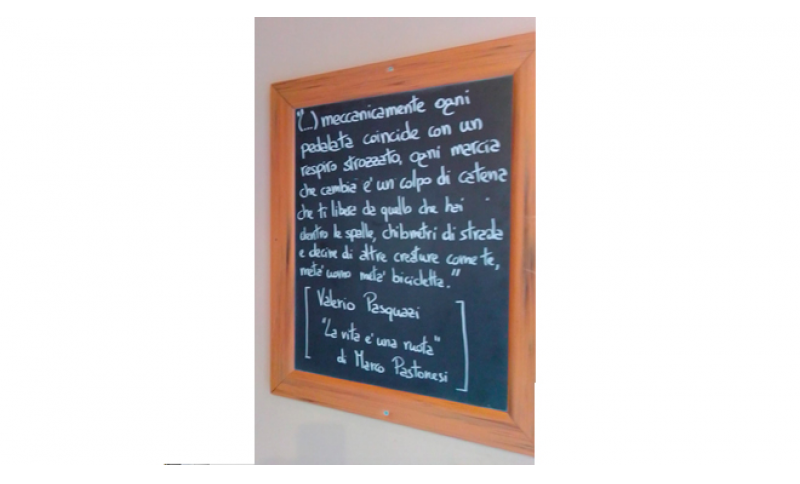 "(...) meccanicamente ogni
pedalata coincide con un
respiro strozzato, ogni marcia
che cambia e' un colpo di catena
che ti libera da quello che hai
dentro le spalle, chilometri di strada
e decine di altre creature come te,
meta' uomo meta' bicicletta."
[Valerio Pasquazi
"La vita e' una ruota"
di Marco Pastonesi]